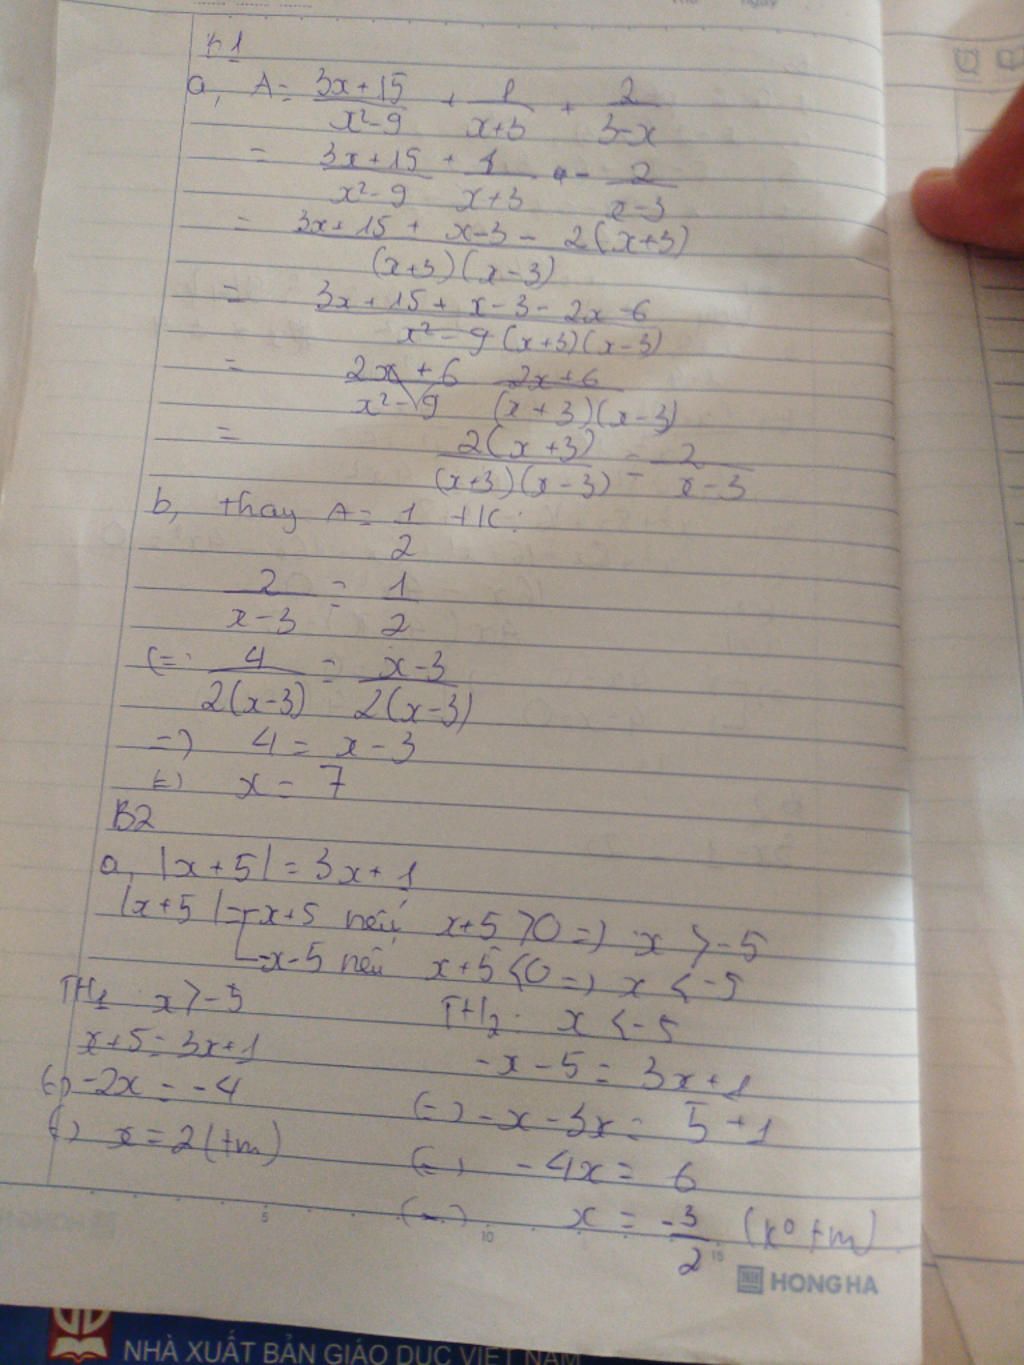 B1
a, A = \frac{3x+15}{x²-9} + \frac{1}{x+3} + \frac{2}{3-x}
= \frac{3x+15}{x²-9} + \frac{1}{x+3} - \frac{2}{x-3}
= \frac{3x+15+x-3-2(x+3)}{(x+3)(x-3)}
= \frac{3x+15+x-3-2x-6}{x²-9 (x+3)(x-3)}
= \frac{2x+6}{x²-9} \frac{2x+6}{(x+3)(x-3)}
= \frac{2(x+3)}{(x+3)(x-3)} = \frac{2}{x-3}
b, thay A = \frac{1}{2} +K:
\frac{2}{x-3} = \frac{1}{2}
(=) \frac{4}{2(x-3)} = \frac{x-3}{2(x-3)}
=) 4 = x-3
(=) x = 7
B2
a, |x+5| = 3x+1
|x+5| = x+5 nếu x+5 > 0 =) x > -5
-x-5 nếu x+5 < 0 =) x < -5
TH1 x > -5 TH2: x < -5
x+5 = 3x+1 -x-5 = 3x+1
(=) -2x = -4 (=) -x-3x = 5+1
(=) x = 2 (tm) (=) -4x = 6
(=) x = \frac{-3}{2} (k⁰ tm)
5 10 15
HONG HA
NHÀ XUẤT BẢN GIÁO DỤC VIỆT NAM